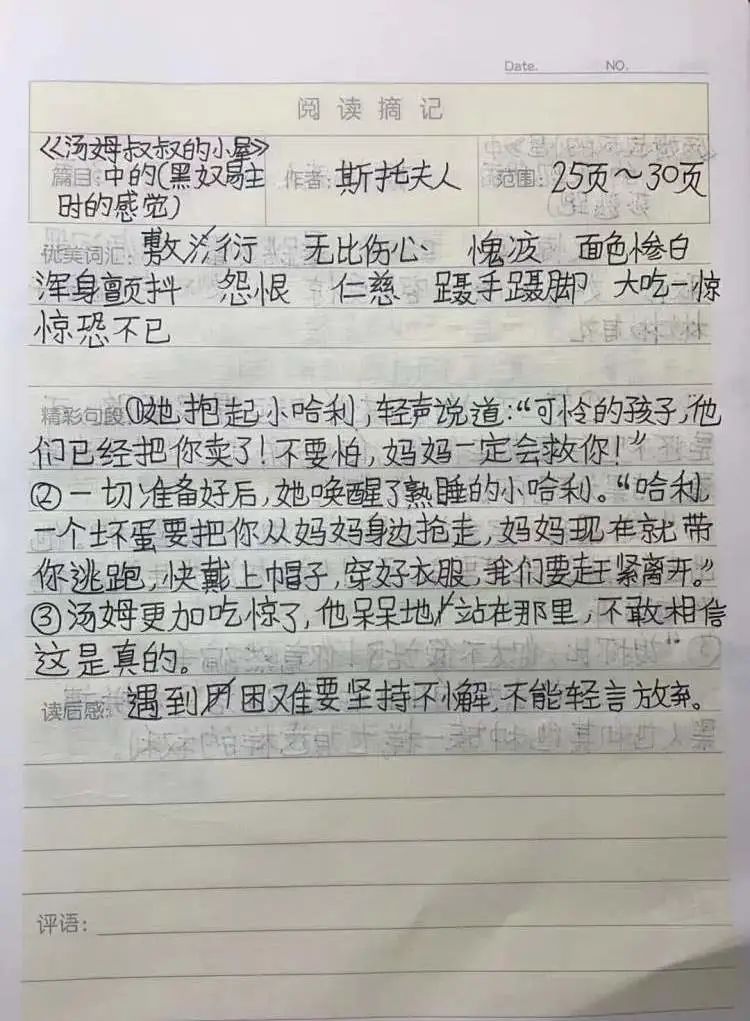 Date. NO.
阅读摘记
《汤姆叔叔的小屋》
篇目:中的(黑奴易主
时的感觉)
作者:斯托夫人
范围:25页～30页
优美词汇:敷衍 无比伤心 愧疚 面色惨白
浑身颤抖 怨恨 仁慈 蹑手蹑脚 大吃一惊
惊恐不已
精彩句段:①她抱起小哈利,轻声说道:“可怜的孩子,他
们已经把你卖了!不要怕,妈妈一定会救你!”
②一切准备好后,她唤醒了熟睡的小哈利。“哈利,
一个坏蛋要把你从妈妈身边抢走,妈妈现在就带
你逃跑,快戴上帽子,穿好衣服,我们要赶紧离开。”
③汤姆更加吃惊了,他呆呆地站在那里,不敢相信
这是真的。
读后感:遇到困难要坚持不懈,不能轻言放弃。
评语: